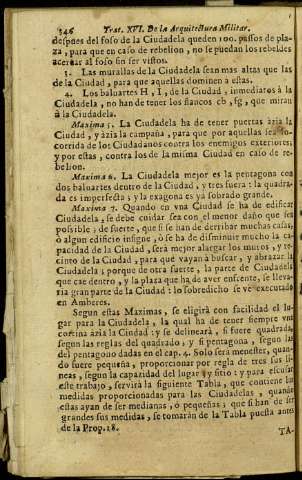 346 Trat. XVI. De la Arquitectura Militar.
despues del foso de la Ciudadela queden 100. passos de pla-
za, para que en caso de rebelion, no se puedan los rebeldes
acercar al foso sin ser vistos.
3. Las murallas de la Ciudadela sean mas altas que las
de la Ciudad, para que aquellas dominen à estas.
4. Los baluartes H, I, de la Ciudad, inmediatos à la
Ciudadela, no han de tener los flancos cb, fg, que miran
à la Ciudadela.
Maxima 5. La Ciudadela ha de tener puertas àzia la
Ciudad, y àzia la campaña, para que por aquellas sea so-
corrida de los Ciudadanos contra los enemigos exteriores;
y por estas, contra los de la misma Ciudad en caso de re-
belion.
Maxima 6. La Ciudadela mejor es la pentagona con
dos baluartes dentro de la Ciudad, y tres fuera: la quadra-
da es imperfecta; y la exagona es ya sobrado grande.
Maxima 7. Quando en vna Ciudad se ha de edificar
Ciudadela, se debe cuidar sea con el menor daño que sea
possible; de suerte, que si se han de derribar muchas casas,
ò algun edificio insigne, ò se ha de disminuir mucho la ca-
pacidad de la Ciudad, serà mejor alargar los muros, y re-
cinto de la Ciudad, para que vayan à buscar, y abrazar la
Ciudadela; porque de otra suerte, la parte de Ciudadela
que cae dentro, y la plaza que ha de aver enfrente, se lleva-
ria gran parte de la Ciudad: lo sobredicho se ve executado
en Amberes.
Segun estas Maximas, se eligirà con facilidad el lu-
gar para la Ciudadela, la qual ha de tener siempre vna
cortina àzia la Ciudad: y se delinearà, si fuere quadrada,
segun las reglas del quadrado; y si pentagona, segun las
del pentagono dadas en el cap. 4. Solo serà menester, quan-
do fuere pequeña, proporcionar por regla de tres sus li-
neas, segun la capacidad del lugar y sitio: y para escusar
este trabajo, servirà la siguiente Tabla, que contiene las
medidas proporcionadas para las Ciudadelas, quando
estas ayan de ser medianas, ò pequeñas; que si han de ser
grandes sus medidas, se tomaràn de la Tabla puesta antes
de la Prop. 18.
TA-